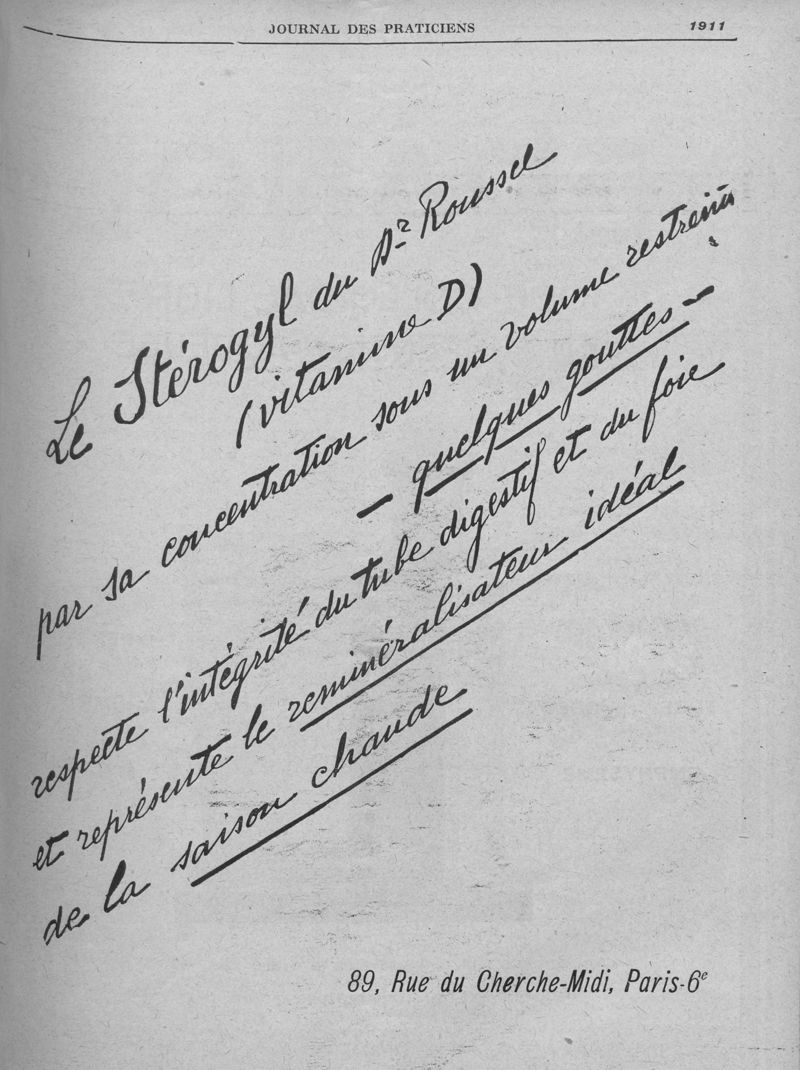 JOURNAL DES PRATICIENS 1911
Le Stérogyl du Dr Roussel
(vitamine D)
par sa concentration sous un volume restreint
— quelques gouttes —
respecte l'intégrité du tube digestif et du foie
et représente le reminéralisateur idéal
de la saison chaude
89, Rue du Cherche-Midi, Paris-6e